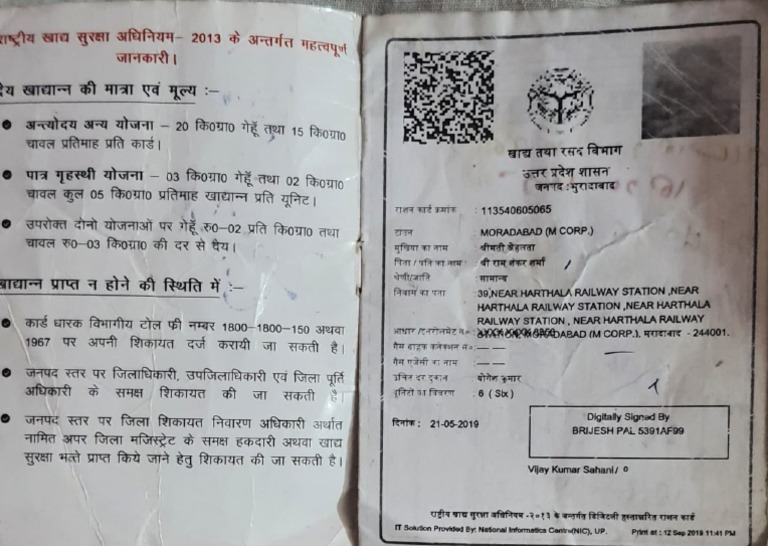 राष्ट्रीय खाद्य सुरक्षा अधिनियम– 2013 के अन्तर्गत महत्वपूर्ण
जानकारी।
देय खाद्यान्न की मात्रा एवं मूल्य :–
अन्त्योदय अन्य योजना – 20 कि0ग्रा0 गेहूँ तथा 15 कि0ग्रा0
चावल प्रतिमाह प्रति कार्ड।
पात्र गृहस्थी योजना – 03 कि0ग्रा0 गेहूँ तथा 02 कि0ग्रा0
चावल कुल 05 कि0ग्रा0 प्रतिमाह खाद्यान्न प्रति यूनिट।
उपरोक्त दोनो योजनाओं पर गेहूँ रु0–02 प्रति कि0ग्रा0 तथा
चावल रु0–03 कि0ग्रा0 की दर से देय।
खाद्यान्न प्राप्त न होने की स्थिति में :–
कार्ड धारक विभागीय टोल फ्री नम्बर 1800–1800–150 अथवा
1967 पर अपनी शिकायत दर्ज करायी जा सकती है।
जनपद स्तर पर जिलाधिकारी, उपजिलाधिकारी एवं जिला पूर्ति
अधिकारी के समक्ष शिकायत की जा सकती है।
जनपद स्तर पर जिला शिकायत निवारण अधिकारी अर्थात
नामित अपर जिला मजिस्ट्रेट के समक्ष हकदारी अथवा खाद्य
सुरक्षा भत्ते प्राप्त किये जाने हेतु शिकायत की जा सकती है।
खाद्य तथा रसद विभाग
उत्तर प्रदेश शासन
जनपद :मुरादाबाद
राशन कार्ड क्रमांक : 113540605065
टाउन MORADABAD (M CORP.)
मुखिया का नाम : श्रीमती स्नेहलता
पिता / पति का नाम : श्री राम शंकर शर्मा
श्रेणी/जाति : सामान्य
निवास का पता : 39,NEAR HARTHALA RAILWAY STATION ,NEAR
HARTHALA RAILWAY STATION ,NEAR HARTHALA
RAILWAY STATION , NEAR HARTHALA RAILWAY
आधार /एनरोलमेंट नं० : MORADABAD (M CORP.), मुरादाबाद - 244001.
गैस ग्राहक कनेक्शन सं० : — —
गैस एजेंसी का नाम : — —
उचित दर दुकान योगेश कुमार
यूनिटों का विवरण : 6 ( Six)
दिनांक : 21-05-2019
Digitally Signed By
BRIJESH PAL 5391AF99
Vijay Kumar Sahani / 0
राष्ट्रीय खाद्य सुरक्षा अधिनियम -२०१३ के अन्तर्गत डिजिटली हस्ताक्षरित राशन कार्ड
IT Solution Provided By: National Informatics Centre(NIC), UP. Print at : 12 Sep 2019 11:41 PM